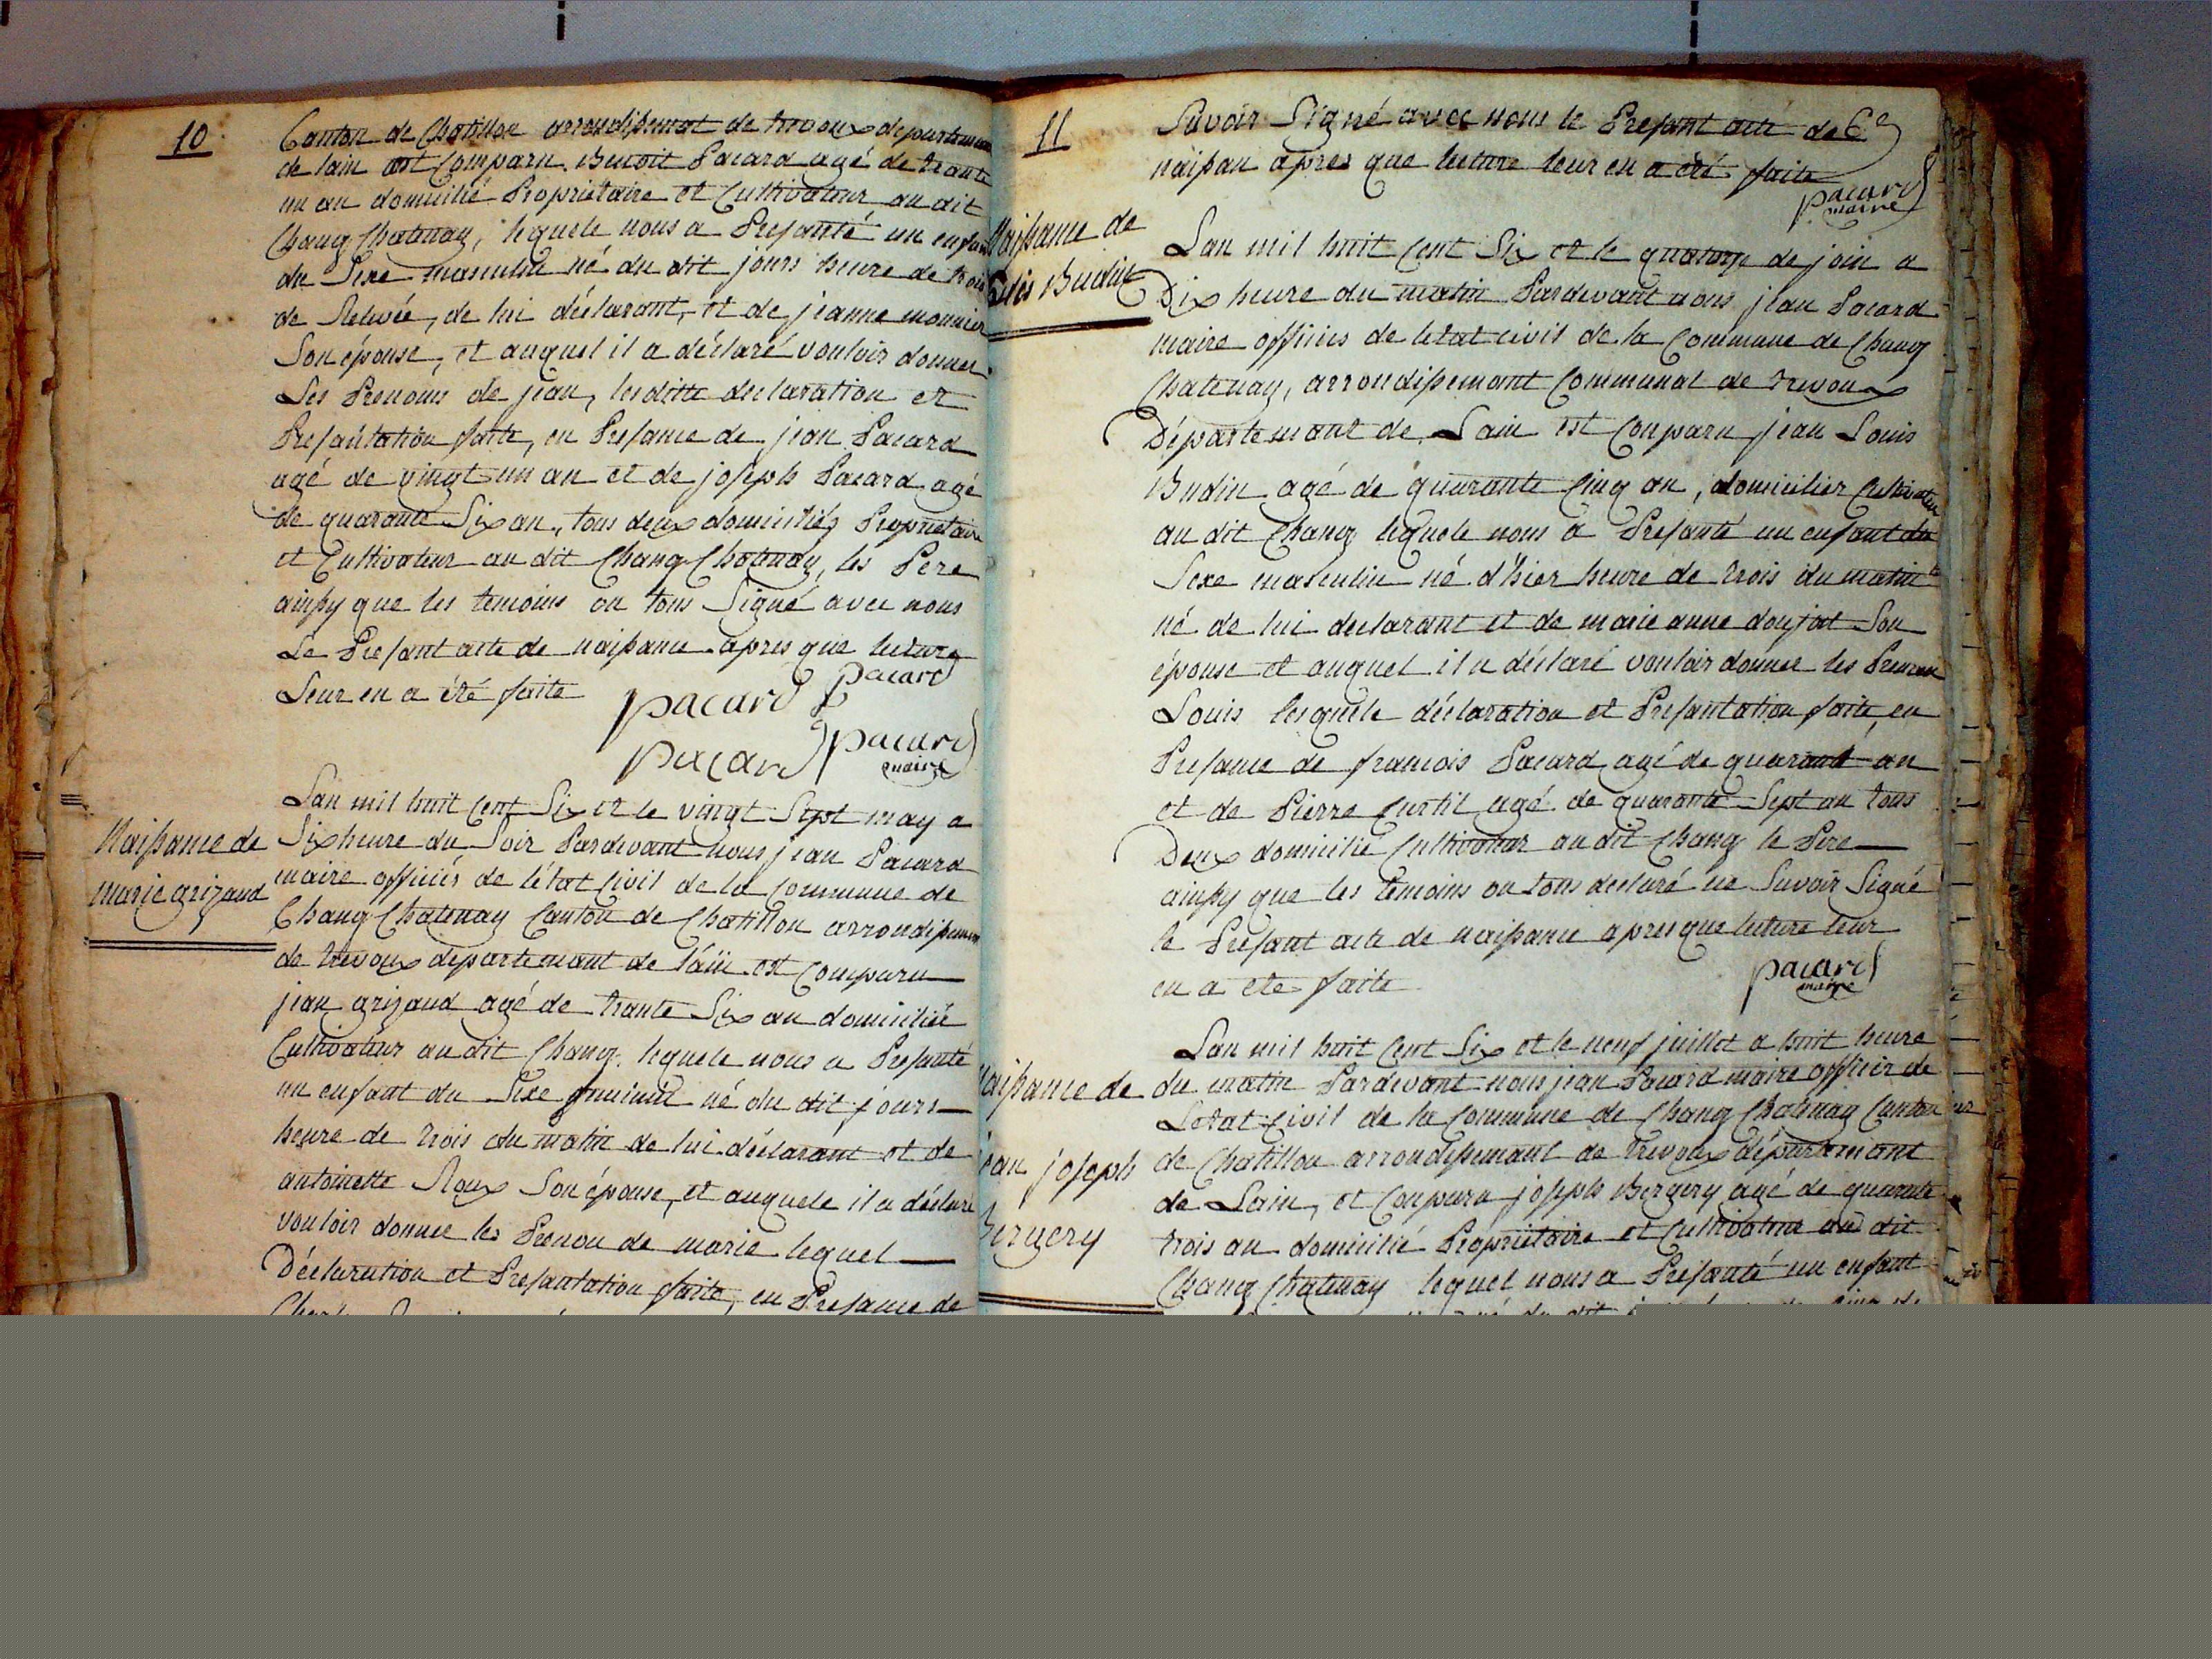 10
Canton de Chatillon arrondisemat de trevoux departement
de lain est Comparu Benoit Pacard agé de trante
un an domicilié Propriétaire et Cultivateur au dit
Chang Chatenay, lequele nous a Presanté un enfant
du Sexe masculin né du dit jours heure de trois
de Relevée, de lui déclarant, et de jeanne monnier
Son épouse, et auquel il a déclaré vouloir donner
Les Prenoms de jean, lesditte declaration et
Presantation faite, en Presance de jean Pacard
agé de vingt un an et de joseph Pacard agé
de quarante Six an, tous deux domiciliés Propriétaire
et Cultivateur au dit Chang Chatenay, les Pere
ainsy que les temoins on tous Signé avec nous
Le Presant acte de naissance apres que lecture
Leur en a été faite
pacard pacard
pacard pacard
maire
Naissance de
marie grizaud
Lan mil huit Cent Six et le vingt Sept may a
Six heure du Soir Pardevant nous jean Pacard
maire officiés de l'état Civil de la Commune de
Chang Chatenay Canton de Chatillon arrondisement
de trevoux departemant de l'ain est Comparu
jean grizaud agé de trante Six an domicilié
Cultivateur au dit Chang lequele nous a Presanté
un enfant du Sexe feminin né du dit jours
heure de trois du matin de lui déclarant et de
antoinette Roux Son épouse, et auquele il a déclaré
vouloir donner les Prenon de marie lequel
Déclaration et Presantation faite, en Presance de
11
Savoir Signé avec nous le Presant acte de Ce
naissan apres que lecture leur en a été faite
pacard
maire
Naissance de
Louis Budin
Lan mil huit Cent Six et le quatorze de join a
Dix heure du matin Pardevant nous jean Pacard
maire officiés de letat civil de la Commune de Chang
Chatenay, arrondisemant Communal de trevoux
Département de Lain est Comparu jean Louis
Budin agé de quarante Cinq an, domicilier Cultivateur
au dit Chang lequele nous a Presanté un enfant du
Sexe masculin né d'hier heure de trois du matin
né de lui declarant et de marie anne donjat Son
épouse et auquel il a déclaré vouloir donner les Prenom
Louis lesquele déclaration et Presantation faite, en
Presance de francois Pacard agé de quarant an
et de Pierre Curtil agé de quarante Sept an tous
Deux domicilié Cultivateur au dit Chang le Pere
ainsy que les temoins on tous declaré ne Savoir Signé
le Presant acte de naissance apres que lecture leur
en a ete faite
pacard
maire
Naissance de
jean joseph
Bergery
Lan mil huit Cent Six et le neuf juillet a huit heure
du matin Pardevant nous jean Pacard maire officier de
Letat Civil de la Commune de Chang Chatenay Canton
de Chatillon arrondisemant de trevoux département
de Lain, et Comparu joseph Bergery agé de quarante
trois an domicilié Propriétaire et Cultivateur au dit
Chang Chatenay lequel nous a Presanté un enfant